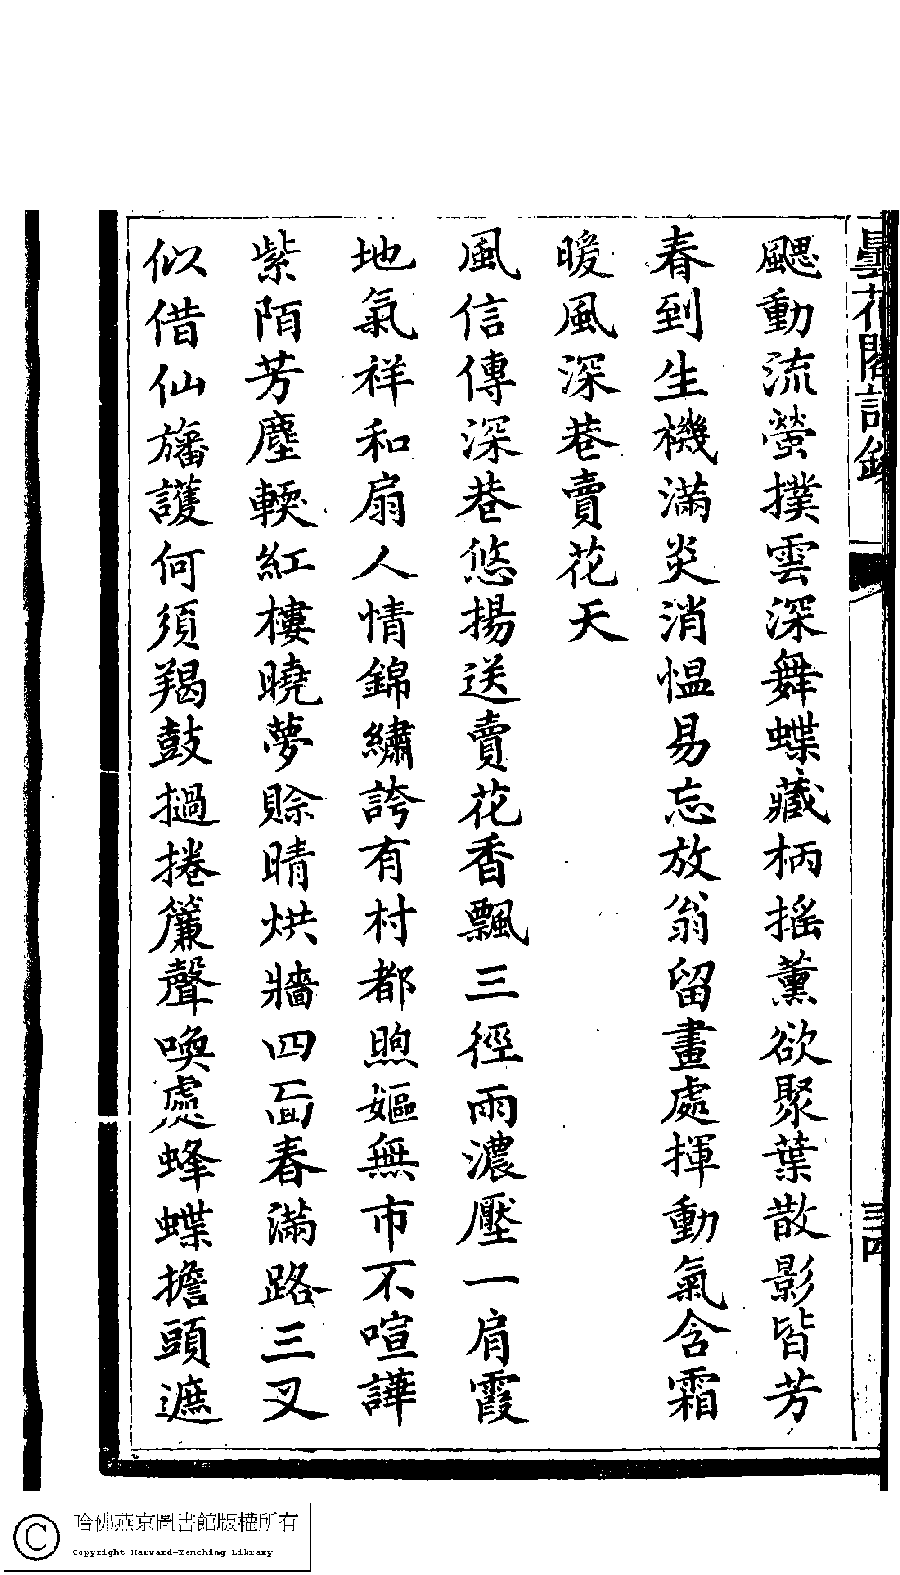 曇花閣詩鈔
三四
颸動流螢撲雲深舞蝶藏柄搖薰欲聚葉散影皆芳
春到生機滿炎消愠易忘放翁留畫處揮動氣含霜
暖風深巷賣花天
風信傳深巷悠揚送賣花香飄三徑雨濃壓一肩霞
地氣祥和扇人情錦繡誇有村都煦嫗無市不喧譁
紫陌芳塵輭紅樓曉夢賒晴烘牆四面春滿路三叉
似借仙旛護何須羯鼓撾捲簾聲喚處蜂蝶擔頭遮
哈佛燕京圖書館版權所有
Copyright Harvard-Yenching Library